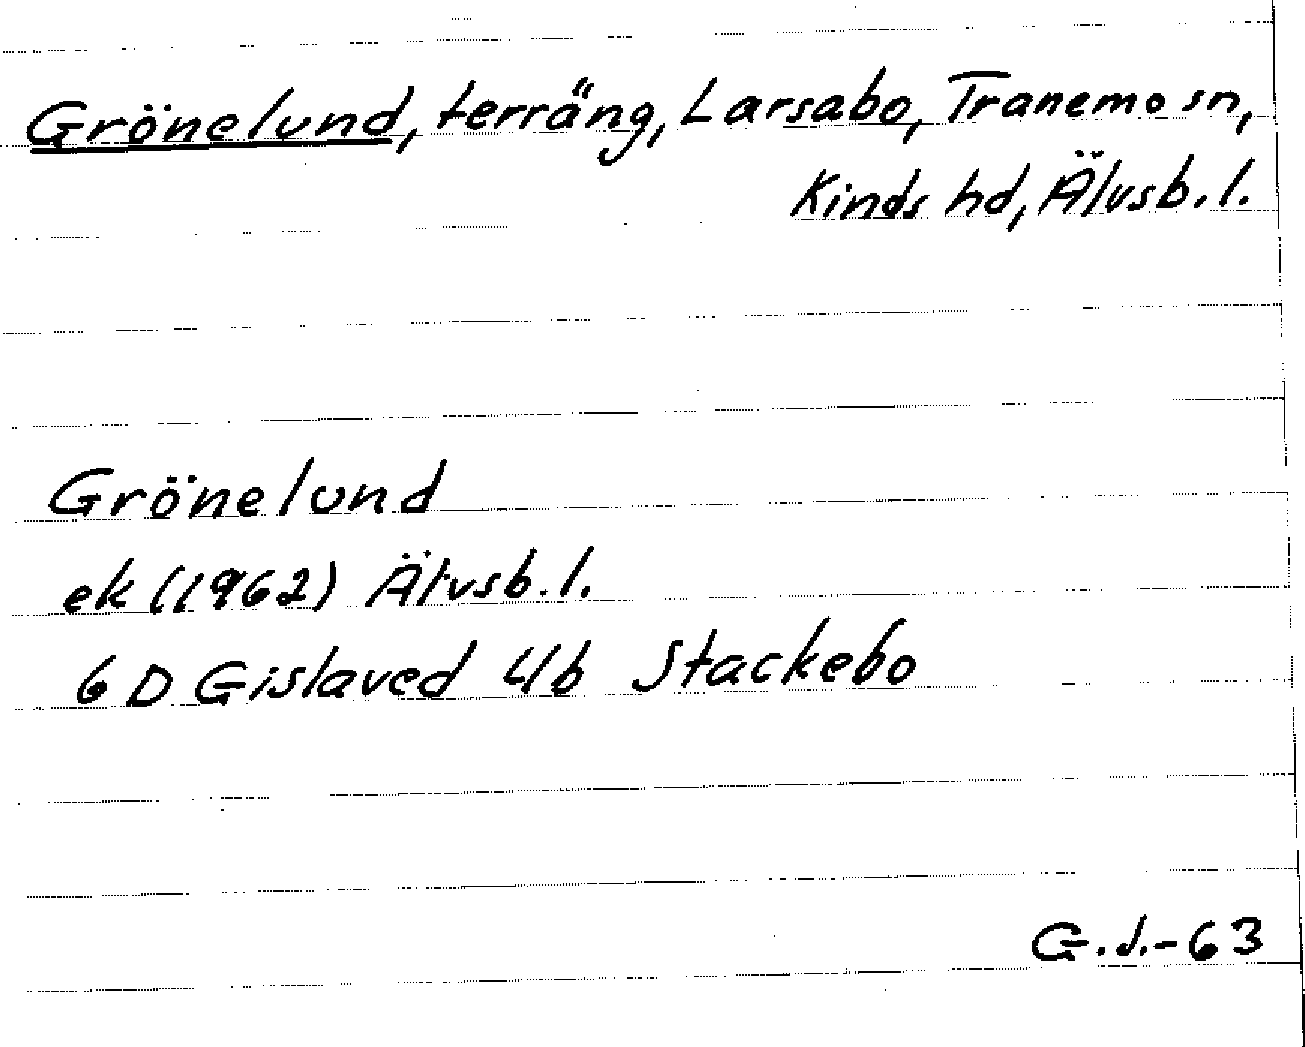 Grönelund, terräng, Larsabo, Tranemo sn,
Kinds hd, Älvsb. l.
Grönelund
ek (1962) Älvsb. l.
6 D Gislaved 4b Stackebo
G. J. - 63